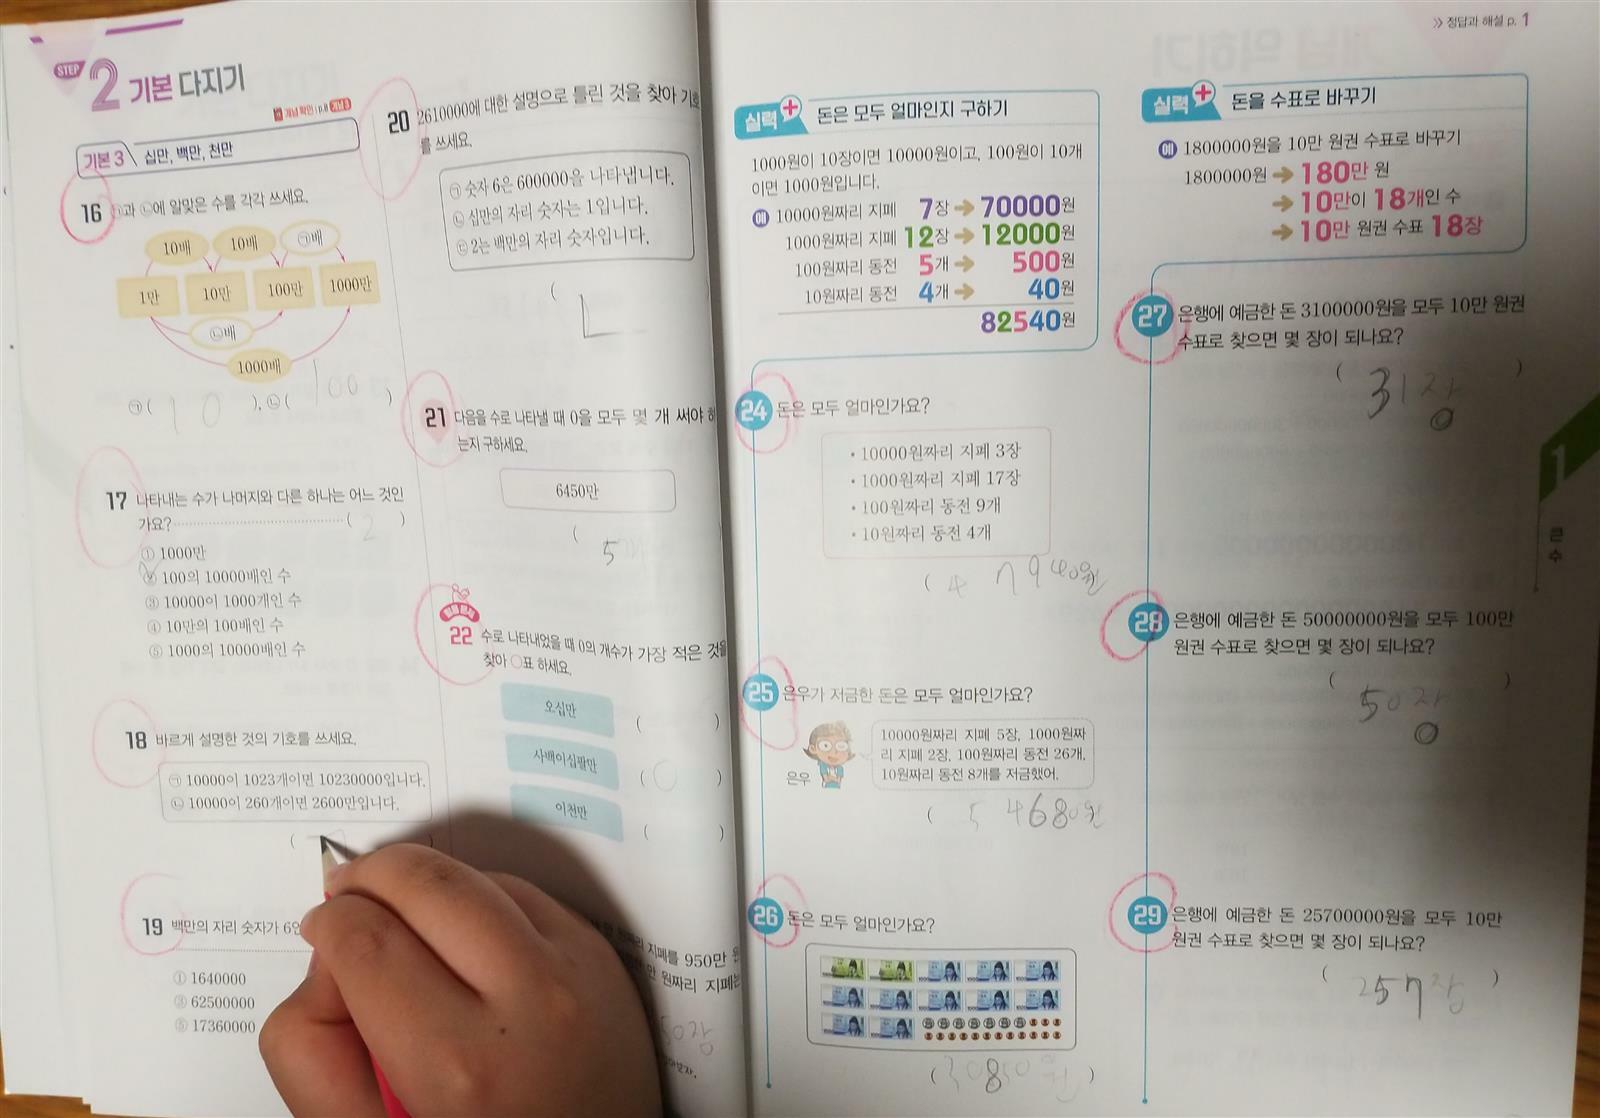 STEP 2 기본 다지기
개념 확인 | p.8 개념 3
기본 3 십만, 백만, 천만
16 ㉠과 ㉡에 알맞은 수를 각각 쓰세요.
10배 10배 ㉠배
1만 10만 100만 1000만
㉡배
1000배
㉠( 10 ), ㉡( 100 )
17 나타내는 수가 나머지와 다른 하나는 어느 것인
가요? ( 2 )
① 1000만
② 100의 10000배인 수
③ 10000이 1000개인 수
④ 10만의 100배인 수
⑤ 1000의 10000배인 수
18 바르게 설명한 것의 기호를 쓰세요.
㉠ 10000이 1023개이면 10230000입니다.
㉡ 10000이 260개이면 2600만입니다.
( )
19 백만의 자리 숫자가 6인
① 1640000
③ 62500000
⑤ 17360000
20 2610000에 대한 설명으로 틀린 것을 찾아 기호
를 쓰세요.
㉠ 숫자 6은 600000을 나타냅니다.
㉡ 십만의 자리 숫자는 1입니다.
㉢ 2는 백만의 자리 숫자입니다.
( ㄴ
21 다음을 수로 나타낼 때 0을 모두 몇 개 써야 하
는지 구하세요.
6450만
( 5
22 수로 나타내었을 때 0의 개수가 가장 적은 것을
찾아 ○표 하세요.
오십만 ( )
사백이십팔만 ( ○ )
이천만 ( )
지폐를 950만 원
만 원짜리 지폐는
50장
정답과 해설 p. 1
실력+ 돈은 모두 얼마인지 구하기
1000원이 10장이면 10000원이고, 100원이 10개
이면 1000원입니다.
예 10000원짜리 지폐 7장 → 70000원
1000원짜리 지폐 12장 → 12000원
100원짜리 동전 5개 → 500원
10원짜리 동전 4개 → 40원
82540원
24 돈은 모두 얼마인가요?
• 10000원짜리 지폐 3장
• 1000원짜리 지폐 17장
• 100원짜리 동전 9개
• 10원짜리 동전 4개
( 47940원
25 은우가 저금한 돈은 모두 얼마인가요?
10000원짜리 지폐 5장, 1000원짜
리 지폐 2장, 100원짜리 동전 26개,
10원짜리 동전 8개를 저금했어.
은우
( 54680원
26 돈은 모두 얼마인가요?
( 30850원 )
실력+ 돈을 수표로 바꾸기
예 1800000원을 10만 원권 수표로 바꾸기
1800000원 → 180만 원
→ 10만이 18개인 수
→ 10만 원권 수표 18장
27 은행에 예금한 돈 3100000원을 모두 10만 원권
수표로 찾으면 몇 장이 되나요?
( 31장 )
28 은행에 예금한 돈 50000000원을 모두 100만
원권 수표로 찾으면 몇 장이 되나요?
( 50장 )
29 은행에 예금한 돈 25700000원을 모두 10만
원권 수표로 찾으면 몇 장이 되나요?
( 257장 )
1
큰 수